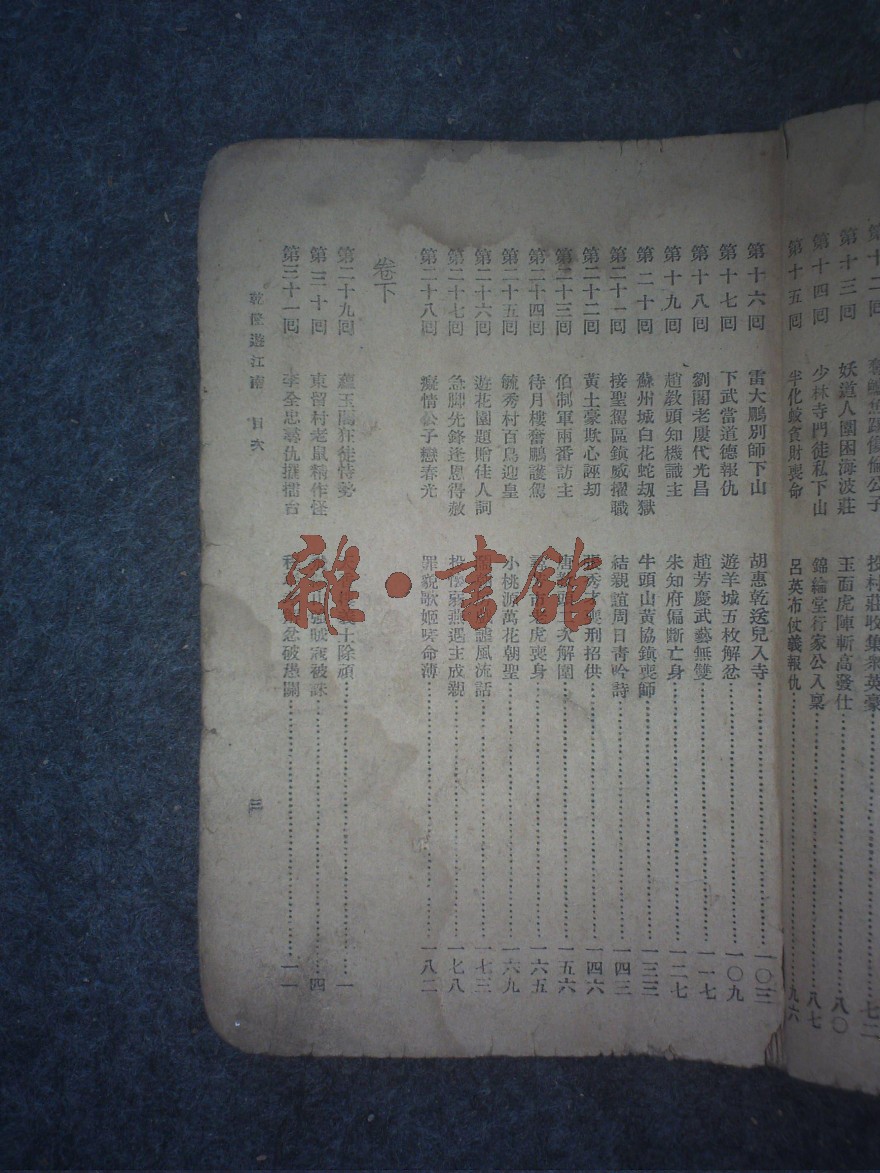 妖道人圍困海波莊 玉面虎陣斬高發仕 八〇
第十四回 少林寺門徒私下山 錦綸堂行家公入稟 八七
第十五回 半化蛟貪財喪命 呂英布仗義報仇 九六
第十六回 雷大鵬別師下山 胡惠乾送兒入寺 一〇三
第十七回 下武當道德報仇 遊羊城五枚解忿 一〇九
第十八回 劉閣老屢代光昌 趙芳慶武藝無雙 一一七
第十九回 趙教頭知機識主 朱知府偏斷亡身 一二七
第二十回 蘇州城白花蛇劫獄 牛頭山黃協鎮喪師 一三三
第二十一回 接聖駕區鎮威擢職 結親誼周日青吟詩 一四三
第二十二回 黃土豪欺心誣劫 秀才 刑招供 一四六
第二十三回 伯制軍兩番訪主 唐 次解圍 一五六
第二十四回 待月樓奮鵬護駕 虎喪身 一六五
第二十五回 毓秀村百鳥迎皇 小桃源萬花朝聖 一六九
第二十六回 遊花園題贈佳人詞 風流話 一七三
第二十七回 急腳先鋒逢恩得赦 投懷 燕遇主成親 一七八
第二十八回 癡情公子戀春光 罪貌歌姬嗟命薄 一八二
卷下
第二十九回 蘊玉閣狂徒恃勢 士除頑 一
第三十回 東留村老鼠精作怪 賊寇被誅 四
第三十一回 李全忠尋仇擺擂台 程 忿破愚關 一一
乾隆遊江南 目次 三
雜·書館